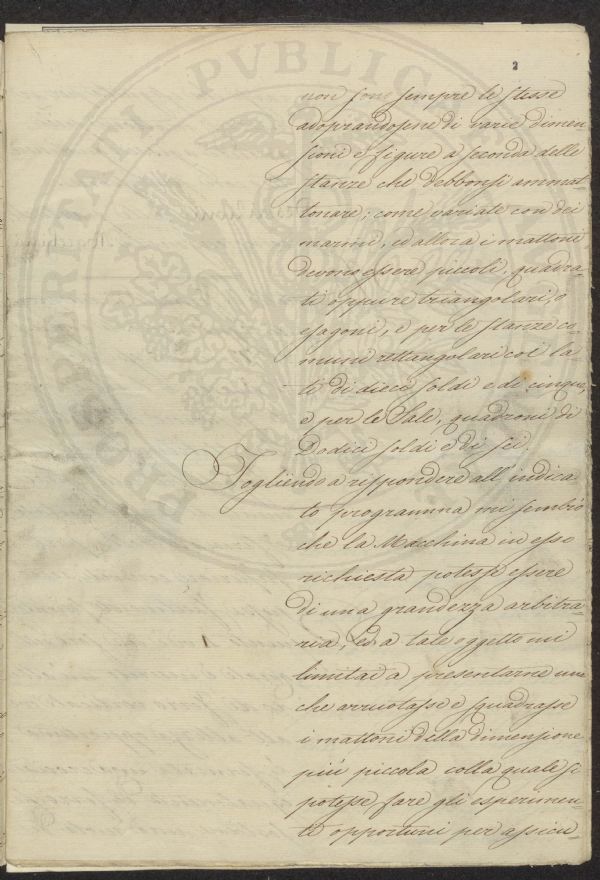 2
non sono sempre le stesse
adoprandosene di varie dimen-
sioni e figure a seconda delle
stanze che debbonsi ammat-
tonare; come variate con dei
marmi, ed allora i mattoni
devono essere piccoli, quadra-
ti oppure triangolari, o
esagoni, e per le stanze co-
muni rettangolari coi la-
ti di dieci soldi e de cinque,
e per le Sale, quadroni di
Dodici soldi e di sei.
Togliendo a rispondere all' indica-
to programma mi sembrò
che la Macchina in esso
richiesta potesse essere
di una grandezza arbitra-
ria, ed a tale oggetto mi
limitai a presentarne una
che arruotasse e squadrasse
i mattoni della dimensione
più piccola colla quale si
potesse fare gli esperimen-
ti opportuni per assicu-
PROSPERITATI PUBLICAE